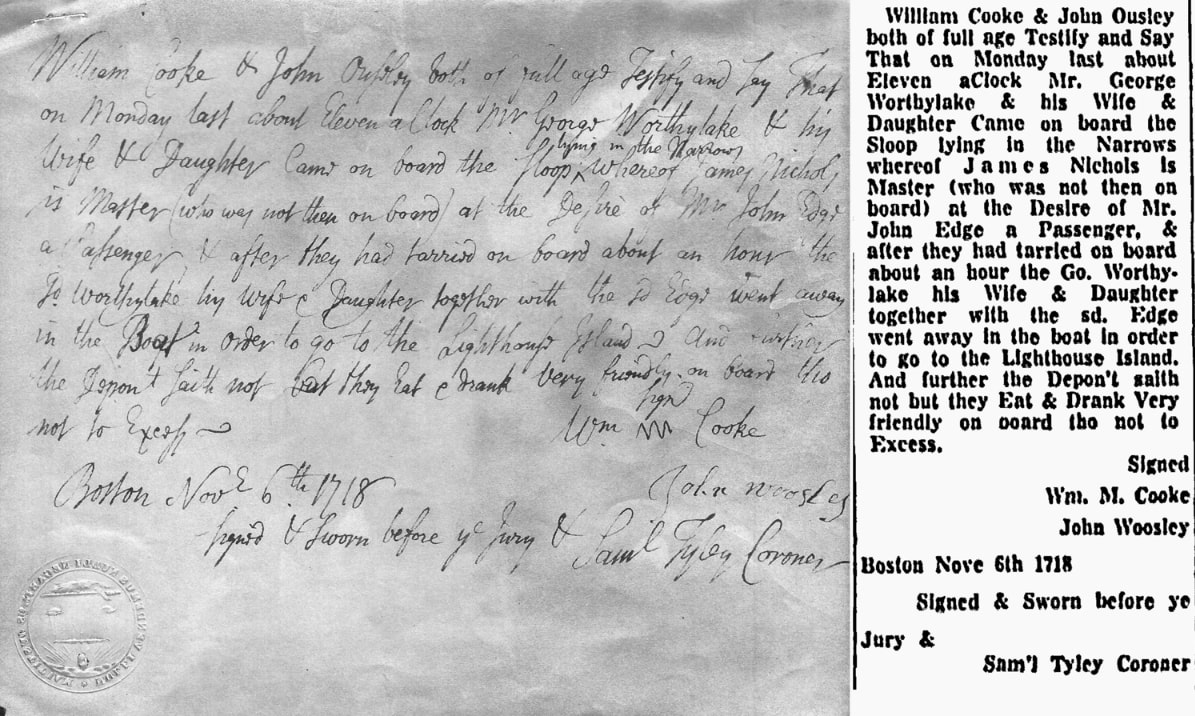 William Cooke & John Ousley both of full age Testify and Say That
on Monday last about Eleven a Clock Mr. George Worthylake & his
Wife & Daughter Came on board the Sloop ^ whereof James Nichols
lying in the Narrows
is Master (who was not then on board) at the Desire of Mr John Edge
a Passenger, & after they had tarried on board about an hour the
Go Worthylake his Wife & Daughter together with the sd Edge went away
in the Boat in order to go to the Lighthouse Island And further
the Depon't saith not but they Eat & drank very friendly on board tho
not to Excess
sign
Wm M Cooke
Boston Nove 6th 1718
John Woosley
Signed & Sworn before ye Jury &
Saml Tyley Coroner
William Cooke & John Ousley
both of full age Testify and Say
That on Monday last about
Eleven aClock Mr. George
Worthylake & his Wife &
Daughter Came on board the
Sloop lying in the Narrows
whereof James Nichols is
Master (who was not then on
board) at the Desire of Mr.
John Edge a Passenger, &
after they had tarried on board
about an hour the Go. Worthy-
lake his Wife & Daughter
together with the sd. Edge
went away in the boat in order
to go to the Lighthouse Island.
And further the Depon't saith
not but they Eat & Drank Very
friendly on board tho not to
Excess.
Signed
Wm. M. Cooke
John Woosley
Boston Nove 6th 1718
Signed & Sworn before ye
Jury &
Sam'l Tyley Coroner